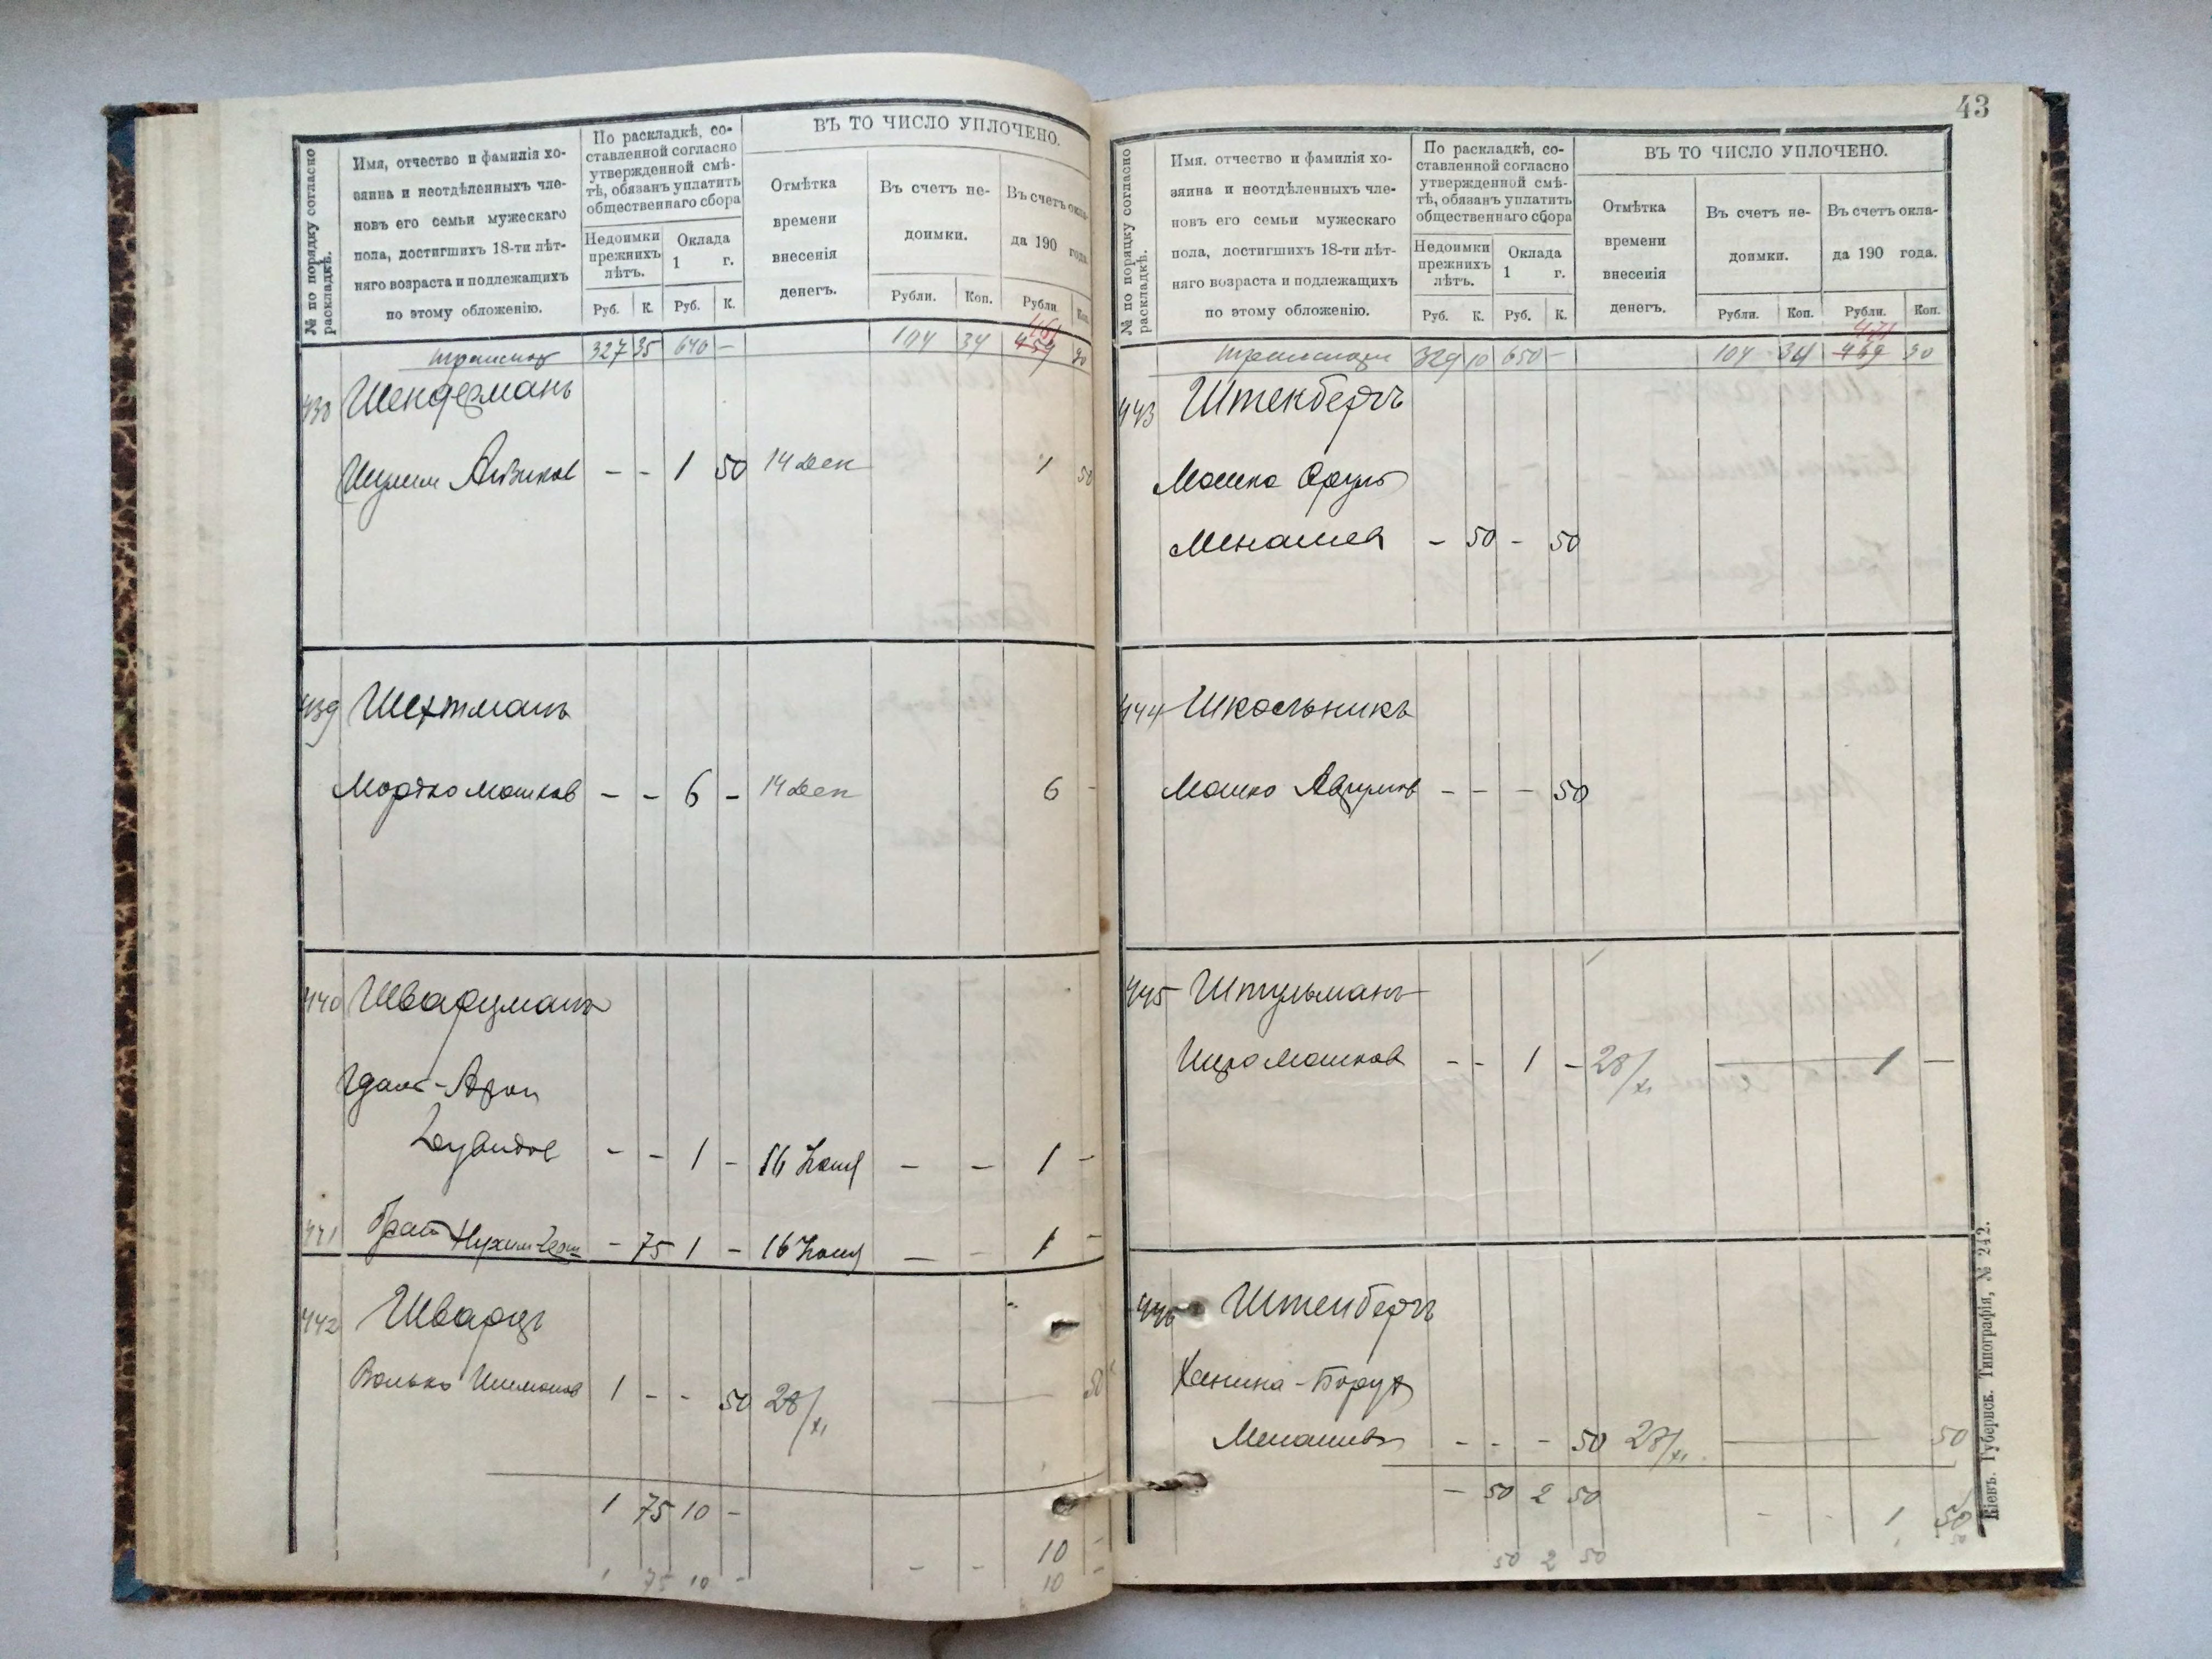 № по порядку согласно раскладкѣ.
Имя, отчество и фамилія хо-
зяина и неотдѣленныхъ чле-
новъ его семьи мужескаго
пола, достигшихъ 18-ти лѣт-
няго возраста и подлежащихъ
по этому обложенію.
По раскладкѣ, со-
ставленной согласно
утвержденной смѣ-
тѣ, обязанъ уплатить
общественнаго сбора
Недоимки
прежнихъ
лѣтъ.
Оклада
1 г.
Руб. К. Руб. К.
ВЪ ТО ЧИСЛО УПЛОЧЕНО.
Отмѣтка
времени
внесенія
денегъ.
Въ счетъ не-
доимки.
Въ счетъ окла-
да 190 года.
Рубли. Коп. Рубли. Коп.
461
транспорт 327 35 640 - 104 34 459 90
438 Шендерманъ
Шулим Айзиков - - 1 50 14 Дек 1 50
439 Шехтманъ
Мордко Мошков - - 6 - 14 Дек 6 -
440 Шварцманъ
Арон
- - 1 - 16 Іюня - - 1 -
441 брат Нухим - 75 1 - 16 Іюня - - 1 -
442 Шварцъ
Волько Шимонов 1 - - 50 28/XI 50
1 75 10 -
10 -
1 75 10 - - - 10 -
43
№ по порядку согласно раскладкѣ.
Имя, отчество и фамилія хо-
зяина и неотдѣленныхъ чле-
новъ его семьи мужескаго
пола, достигшихъ 18-ти лѣт-
няго возраста и подлежащихъ
по этому обложенію.
По раскладкѣ, со-
ставленной согласно
утвержденной смѣ-
тѣ, обязанъ уплатить
общественнаго сбора
Недоимки
прежнихъ
лѣтъ.
Оклада
1 г.
Руб. К. Руб. К.
ВЪ ТО ЧИСЛО УПЛОЧЕНО.
Отмѣтка
времени
внесенія
денегъ.
Въ счетъ не-
доимки.
Въ счетъ окла-
да 190 года.
Рубли. Коп. Рубли. Коп.
471
транспорт 329 10 650 - 104 34 469 90
443 Штенбергъ
Мошко Сруль
Менашев - 50 - 50
444 Школьникъ
Мошко Аврумов - - - 50
445 Штульманъ
Шро Мошков - - 1 - 28/XI 1 -
446 Штенбергъ
Ханина-Борух
Менашев - - - 50 28/XI 50
- 50 2 50
- - 1 50
50 2 50
Кіевъ. Губернск. Типографія, № 242.